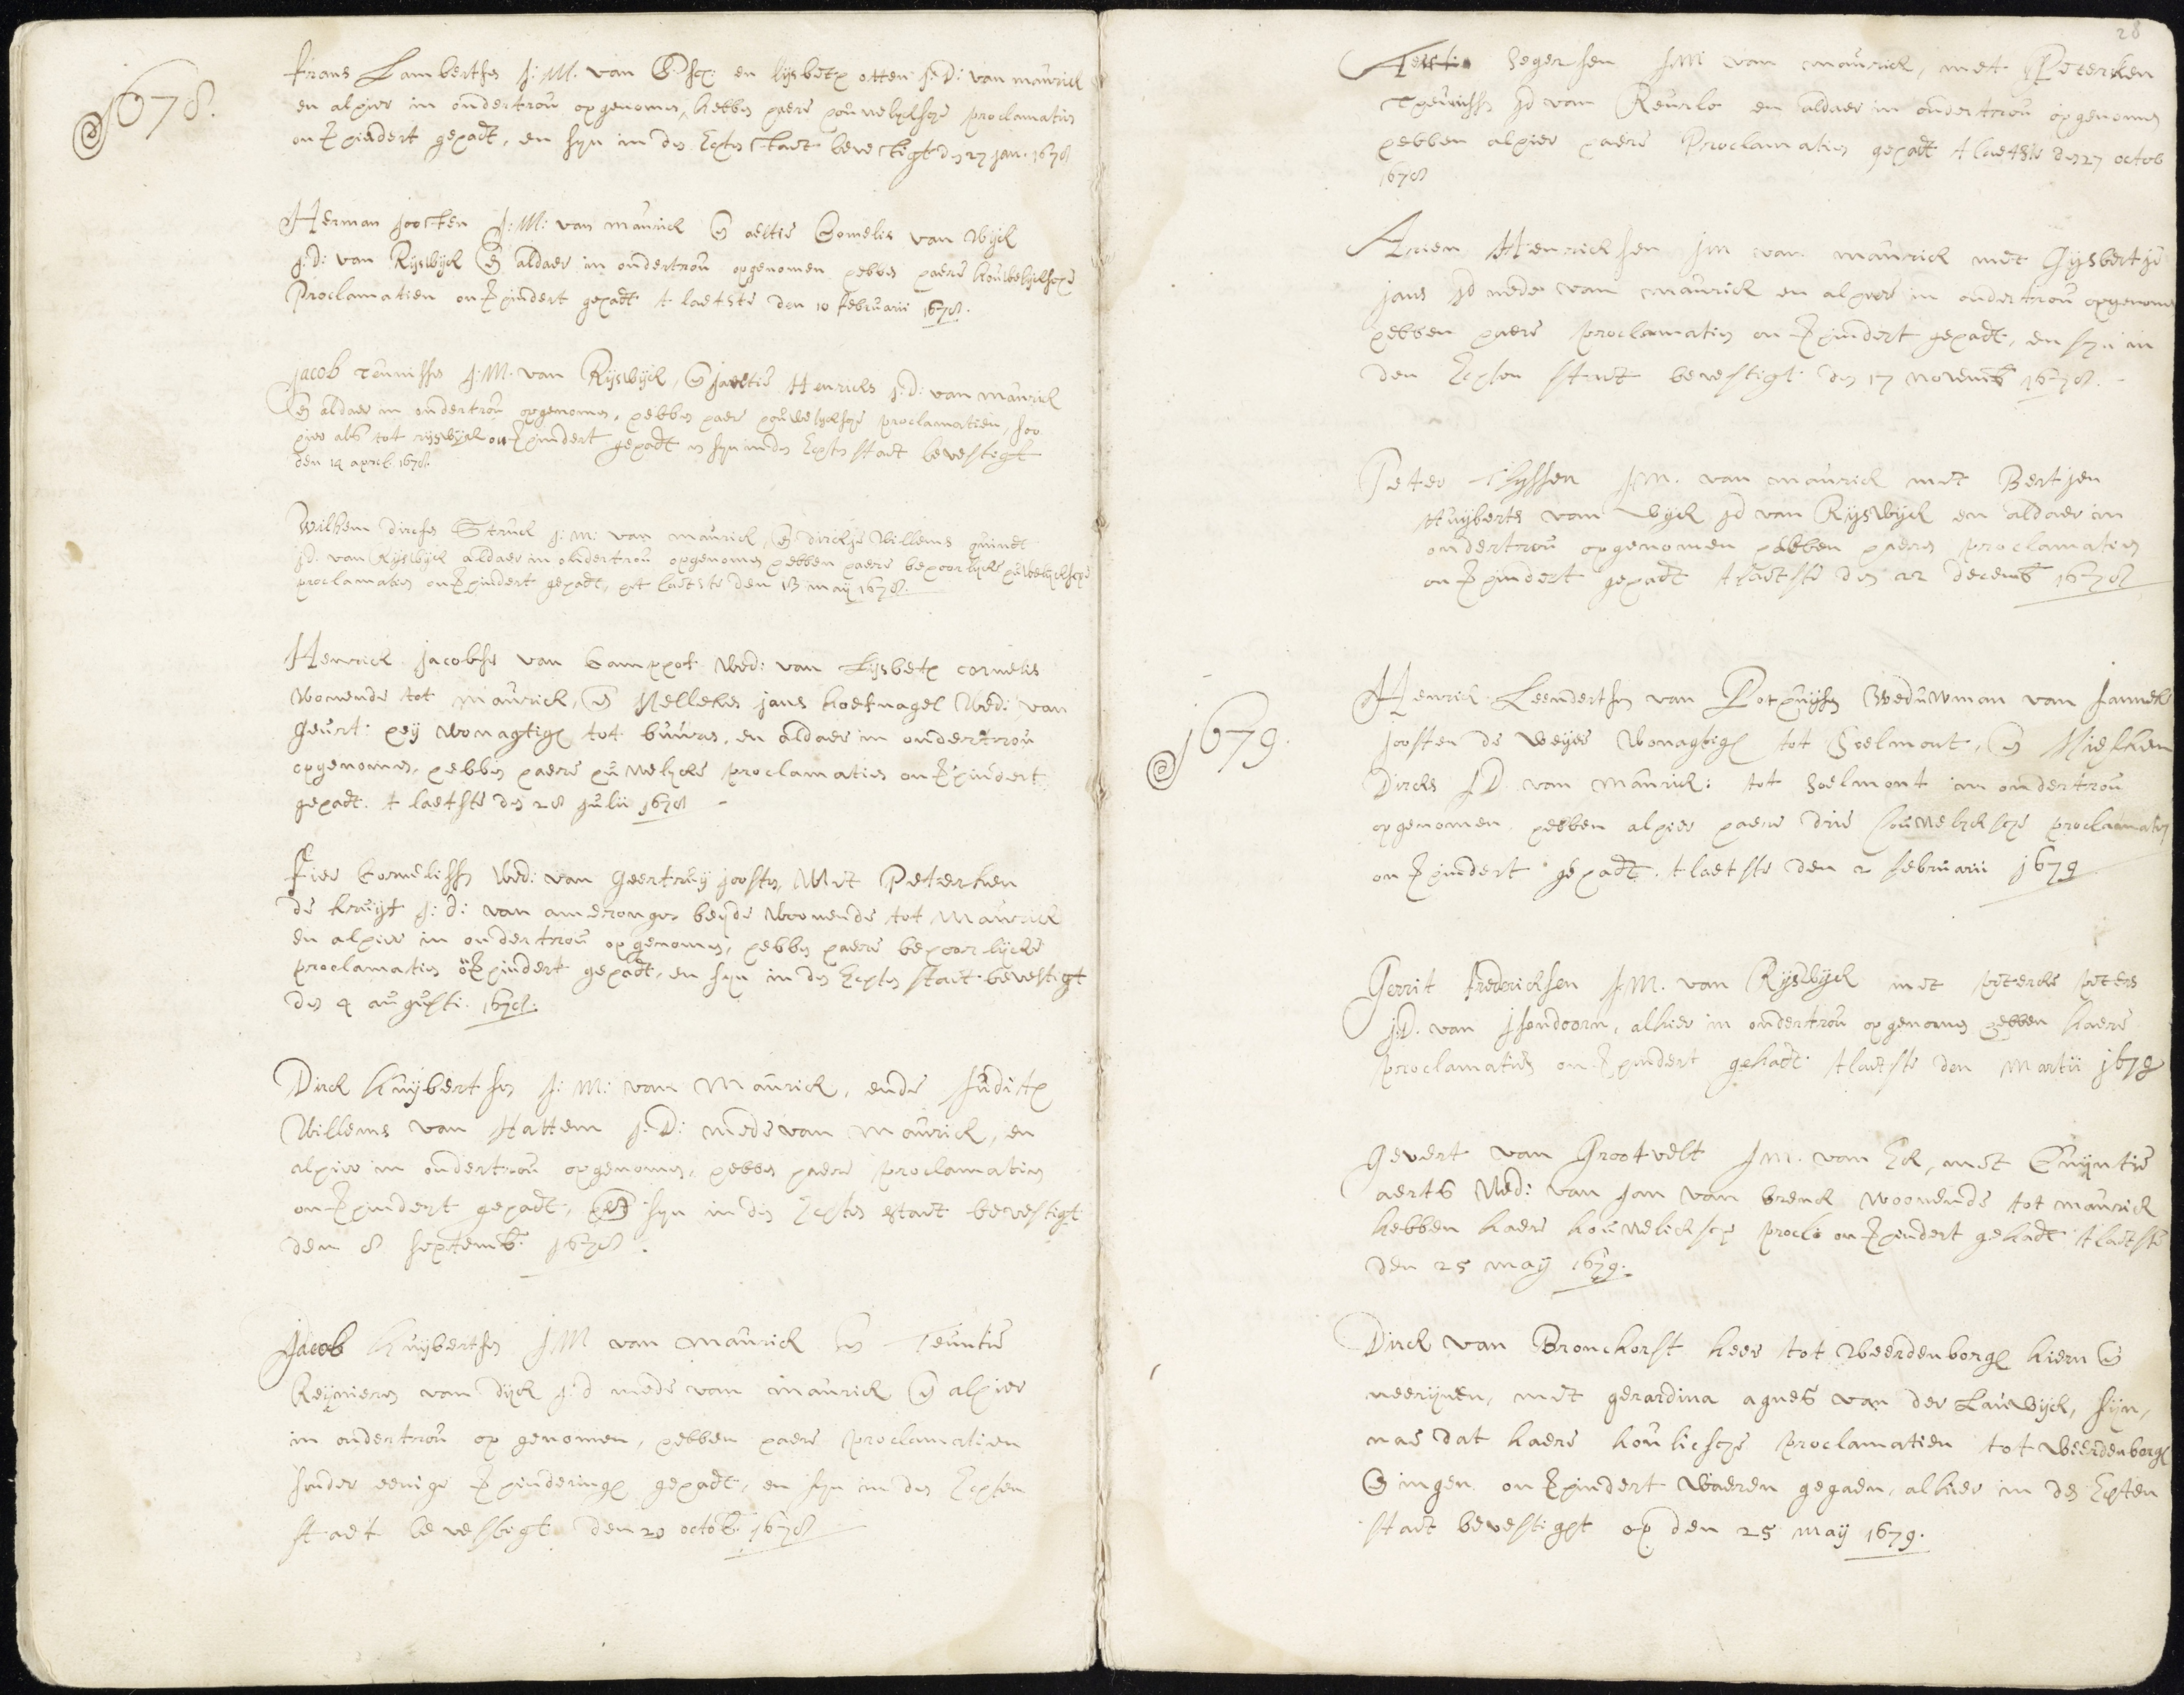 1678.
frans Lambertse J: M. van en lijsbeth otten J: D: van maurick
en alhier in ondertrou opgenomen, hebben haere houwelijkse proclamatien
onverhindert gehadt, en sijn in den Echten staet bevestigt den 27 jan. 1678
Herman joosten J: M: van maurick en aeltie Cornelis van Wijck
J: D: van Rijswijck en aldaer in ondertrou opgenomen hebben haere houwelijksche
Proclamatien onverhindert gehadt t laetste den 10 februarii 1678.
jacob teunisse J: M. van Rijswijck, en Henricks J: D: van maurick
en aldaer in ondertrou opgenomen, hebben haere houwelijcksche proclamatien, soo
hier als tot rijswijck onverhindert gehadt en sijn inden Echten staet bevestigt
den 14 april. 1678.
Wilhem dircse Struck J: M: van maurick, en dirckje Willems
JD. van Rijswijck aldaer in ondertrou opgenomen hebben haere behoorlijcke houwelijcksche
proclamatien onverhindert gehadt, het laetste den 18 maij 1678.
Henrick jacobse van Wed: van Lijsbeth cornelis
Wonende tot maurick, en Nelleken jans hoefnagel Wed: van
Geurt: woonagtigh tot buuren, en aldaer in ondertrou
opgenomen, hebben haere huwelycke proclamatien onverhindert
gehadt. t laetste den 28 Julii 1678 -
fier Cornelissen Wed: van Geertruij joosten, Met Peterken
de kruijf J: D: van amerongen beijde Woonende tot Maurick
en alhier in ondertrou opgenomen, hebben haere behoorlijcke
proclamatien onverhindert gehadt, en sijn in den Echten staet bevestigt
den 4 augusti. 1678.
Dirck huijbertsen J: M: van Maurick, ende Judith
Willems van Hattem J: D: mede van Maurick, en
alhier in ondertrou opgenomen, hebben haere proclamatien
onverhindert gehadt, en sijn in den Echten staet bevestigt
den 8 septemb. 1678.
Jacob huijbertsen JM van Maurick en Teuntie
Reijniersen van Dijck J:d mede van Maurick en alhier
in ondertrou op genomen, hebben haere proclamatien
sonder eenige verhinderingh gehadt, en sijn in den Echten
staet bevestigt den 20 octob. 1678
28
segersen JM van Maurick, met Peterken
Jd van en aldaer in ondertrou opgenomen
hebben alhier haere Proclamatien gehadt t laetste den 27 octob
1678
Arien Henricksen JM van Maurick met Gijsbertje
jans Jd mede van Maurick en alhier in ondertrou opgenomen
hebben haere proclamatien onverhindert gehadt, en sijn in
den Echten staet bevestigt den 17 novemb 1678. -
Peter Thijssen JM. van maurick met Bertjen
Huijberts van Wijck Jd van Rijswijck en aldaer in
ondertrou opgenomen hebben haeren proclamatien
onverhindert gehadt t laetste den 22 decemb 1678
1679.
Henrick Leendertsen van Weduwman van Janneke
joosten de weijer Wonagtigh tot Soelmont, en
Dircks JD van Maurick: tot Soelmont in ondertrou
opgenomen hebben alhier haere drie houwelijcksche proclamatien
onverhindert gehadt. t laetste den 2 februarii 1679
Gerrit fredericksen JM. van Rijswijck met peterke peters
JD. van Ysendoorn, alhier in ondertrou opgenomen hebben haere
proclamatien onverhindert gehadt t laetste den Martii 1679
Gevert van Grootvelt JM. van Eck, met
aerts Wed: van Jan van brenck woonende tot maurick
hebben haere houwelicksche procla onverhindert gehadt t laetste
den 25 maij 1679.
Dirck van Bronckhorst heer tot Weerdenborgh hiern en
neerijnen, met gerardina agnes van der Lauwijck, sijn,
nae dat haere houlicsche proclamatien tot weerdenborgh
en ingen onverhindert Waeren gegaen, alhier in den Echten
staet bevestight op den 25 maij 1679.